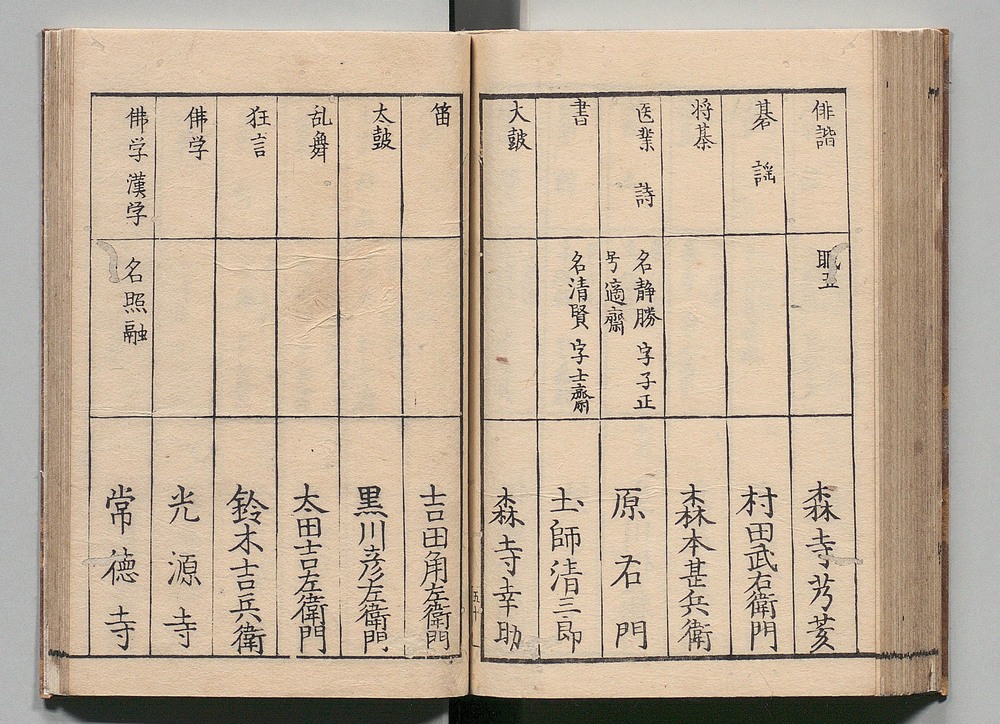 俳諧
眠五
森寺芳
碁 謡
村田武右衛門
将棊
森本甚兵衛
医業 詩
名静勝 字子正
号適齋
原右門
書
名清賢 字士齋
土師清三郎
大鼓
森寺幸助
五十
笛
吉田角左衛門
太鼓
黒川彦左衛門
乱舞
太田吉左衛門
狂言
鈴木吉兵衛
佛学
光源寺
佛学 漢字
名照融
常徳寺